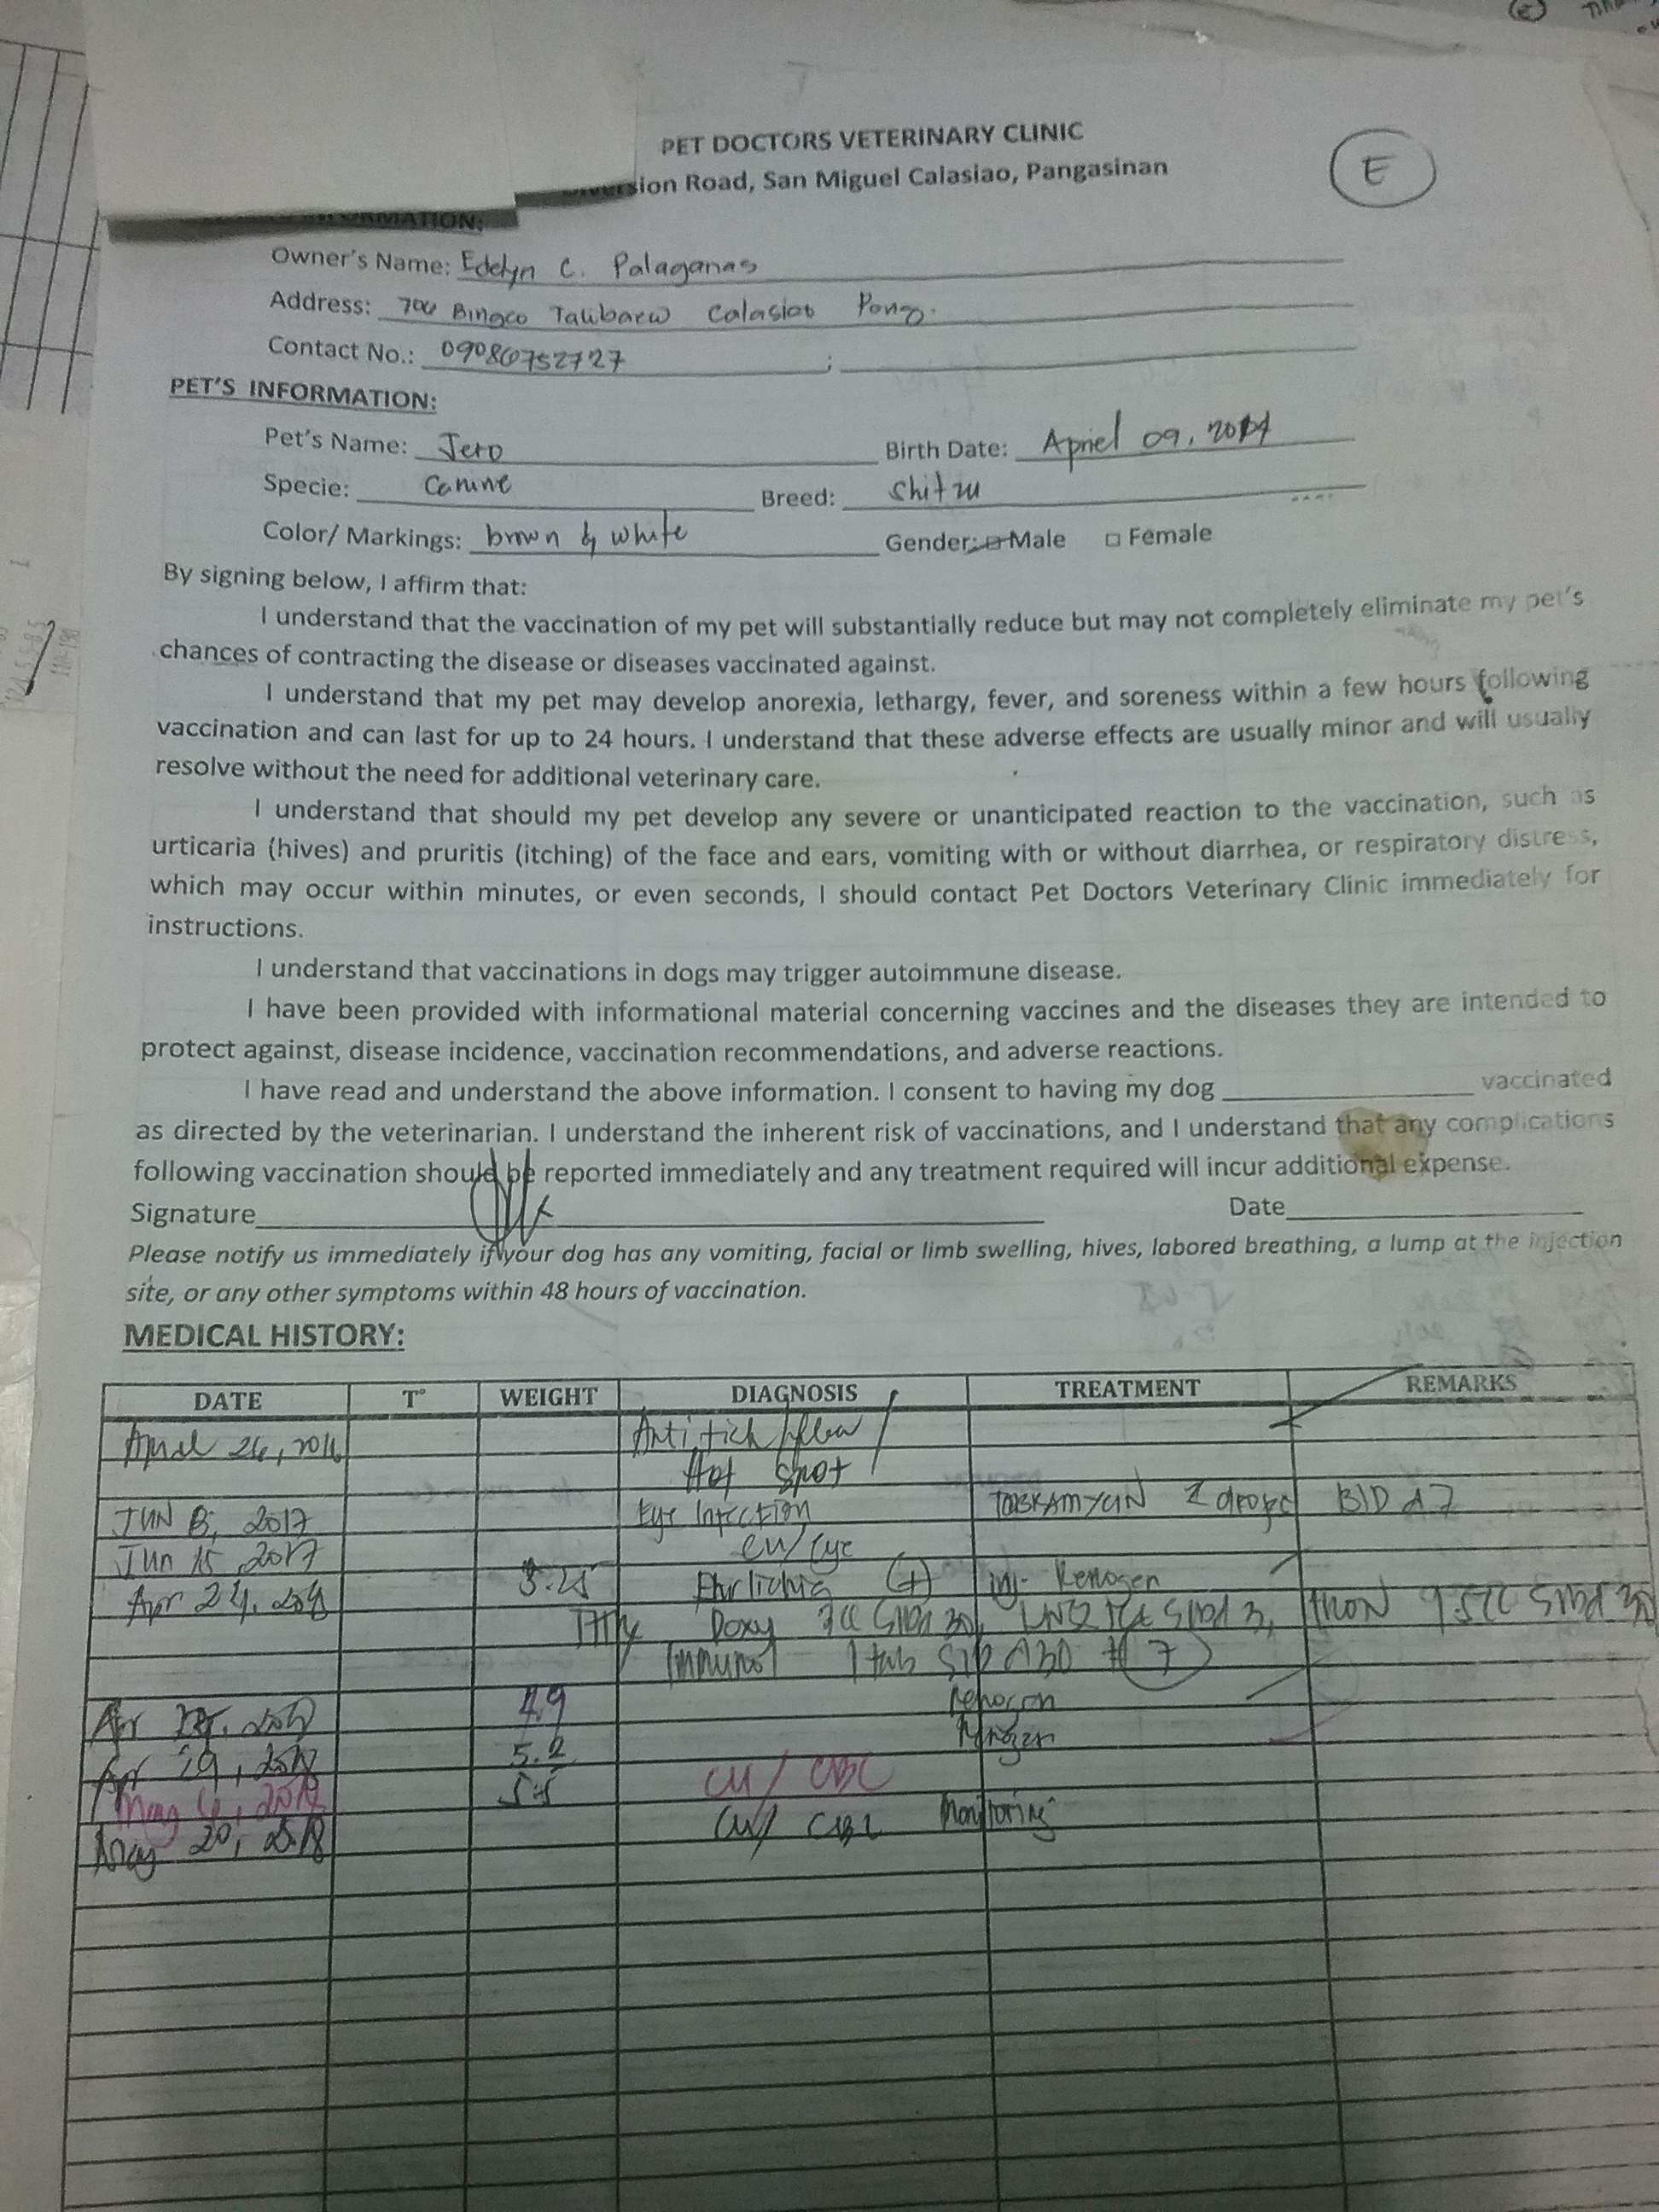 PET DOCTORS VETERINARY CLINIC
sion Road, San Miguel Calasiao, Pangasinan
E
INFORMATION:
Owner's Name: Edelyn C. Palaganas
Address: Calasiao Pang.
Contact No.: 09086752727 ;
PET'S INFORMATION:
Pet's Name: Jero Birth Date: April 09, 2014
Specie: Canine Breed: Shitzu
Color/ Markings: brown & white Gender: Male Female
By signing below, I affirm that:
I understand that the vaccination of my pet will substantially reduce but may not completely eliminate my pet's
chances of contracting the disease or diseases vaccinated against.
I understand that my pet may develop anorexia, lethargy, fever, and soreness within a few hours following
vaccination and can last for up to 24 hours. I understand that these adverse effects are usually minor and will usually
resolve without the need for additional veterinary care.
I understand that should my pet develop any severe or unanticipated reaction to the vaccination, such as
urticaria (hives) and pruritis (itching) of the face and ears, vomiting with or without diarrhea, or respiratory distress,
which may occur within minutes, or even seconds, I should contact Pet Doctors Veterinary Clinic immediately for
instructions.
I understand that vaccinations in dogs may trigger autoimmune disease.
I have been provided with informational material concerning vaccines and the diseases they are intended to
protect against, disease incidence, vaccination recommendations, and adverse reactions.
I have read and understand the above information. I consent to having my dog vaccinated
as directed by the veterinarian. I understand the inherent risk of vaccinations, and I understand that any complications
following vaccination should be reported immediately and any treatment required will incur additional expense.
Signature Date
Please notify us immediately if your dog has any vomiting, facial or limb swelling, hives, labored breathing, a lump at the injection
site, or any other symptoms within 48 hours of vaccination.
MEDICAL HISTORY:
DATE T° WEIGHT DIAGNOSIS TREATMENT REMARKS
April 26, 2016 Anti tick/flea
Hot Spot
JUN 8, 2017 Eye Infection BID d7
Jun 15, 2017 cu/eye
Apr 24, 2018 Ehrlichia (+) inj.
Doxy
1 tab
Apr 2018 4.9
Apr 29, 2018 5.2
May 6, 2018 5.5 cu/ CBC
May 20, 2018 cu/ CBC Monitoring